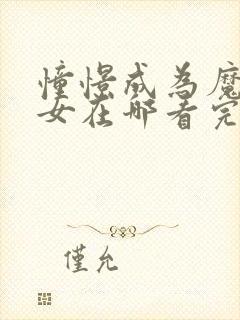 憧憬成為魔
女在哪看完
僅允